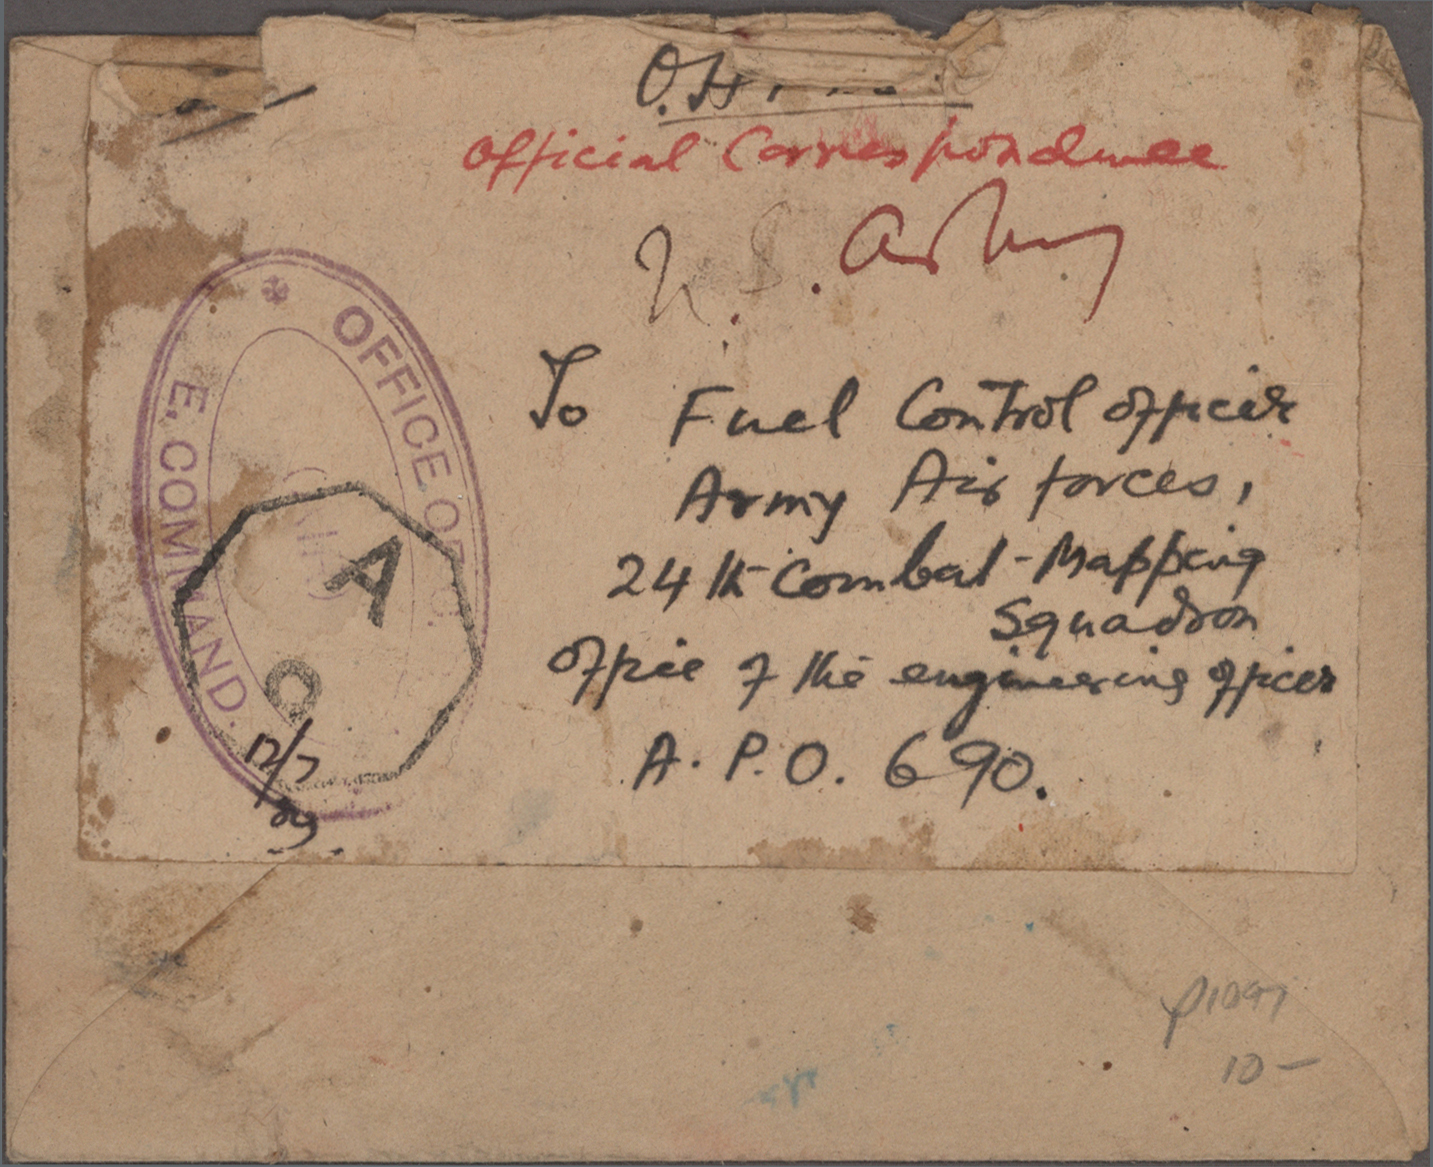 O.H.
Official Correspondence
U.S. Army
To Fuel Control officer
Army Air forces,
24th Combat-Mapping
Squadron
office of the engineering officer
A.P.O. 690.
OFFICE OF
E. COMMAND.
A
12/7
p1097
10-